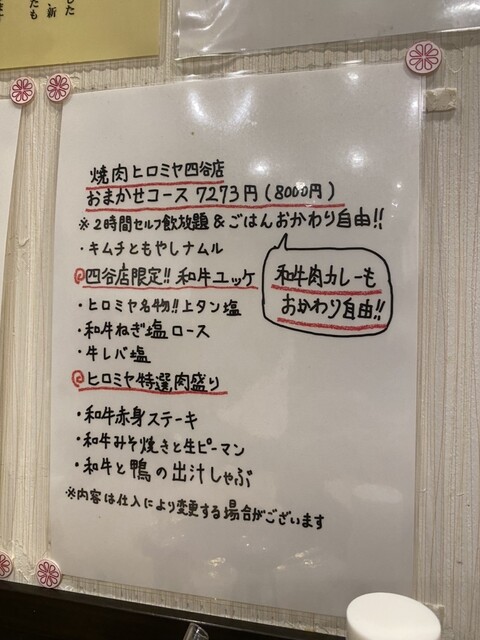 した
、新
たも
焼肉ヒロミヤ四谷店
おまかせコース7273円(8000円)
※2時間セルフ飲放題&ごはんおかわり自由!!
・キムチともやしナムル
四谷店限定!!和牛ユッケ
和牛肉カレーも
おかわり自由!!
・ヒロミヤ名物!!上タン塩
・和牛ねぎ塩ロース
・牛レバ塩
ヒロミヤ特選肉盛り
・和牛赤身ステーキ
・和牛みそ焼きと生ピーマン
・和牛と鴨の出汁しゃぶ
※内容は仕入により変更する場合がございます